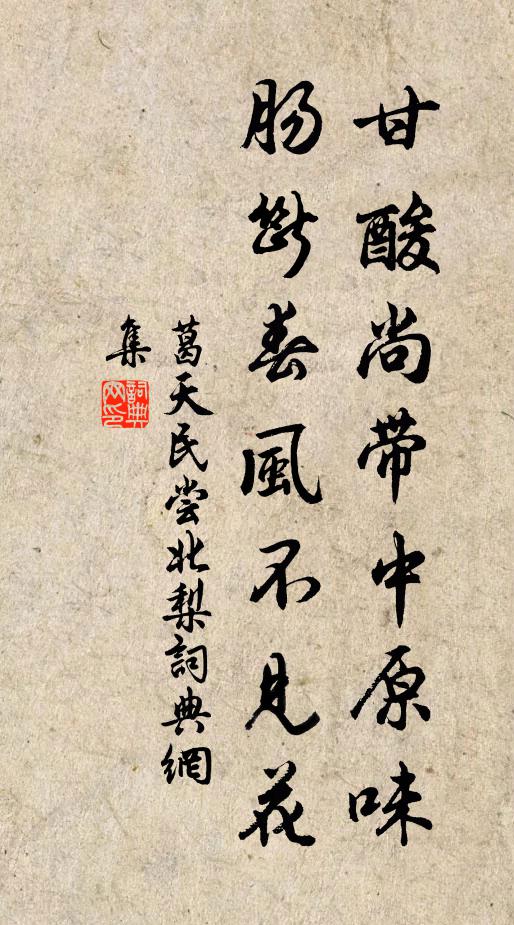 甘酸尚带中原味
肠断春風不見花
葛天民尝北梨詞典網
集
詞典
网印